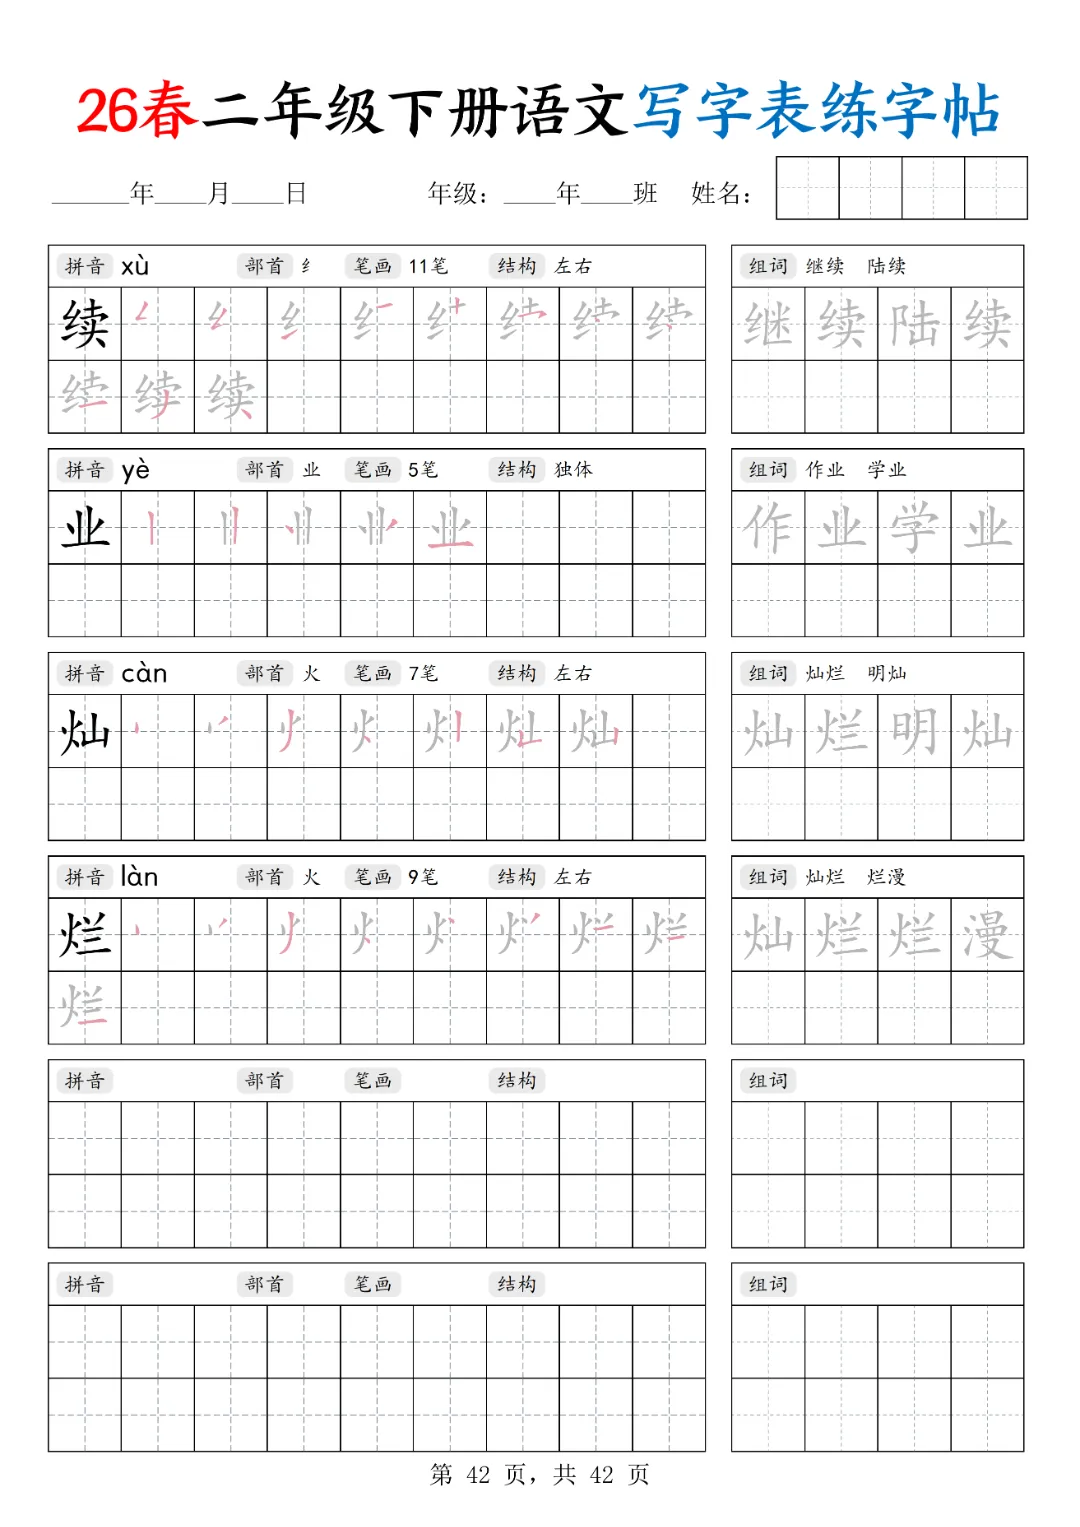 26春二年级下册语文写字表练字帖
______年____月____日 年级：____年____班 姓名：
拼音 xù 部首 纟 笔画 11笔 结构 左右 组词 继续 陆续
续 继续陆续
续
拼音 yè 部首 业 笔画 5笔 结构 独体 组词 作业 学业
业 业 作业学业
拼音 càn 部首 火 笔画 7笔 结构 左右 组词 灿烂 明灿
灿 灿 灿烂明灿
拼音 làn 部首 火 笔画 9笔 结构 左右 组词 灿烂 烂漫
烂 灿烂烂漫
烂
拼音 部首 笔画 结构 组词
拼音 部首 笔画 结构 组词
第 42 页，共 42 页